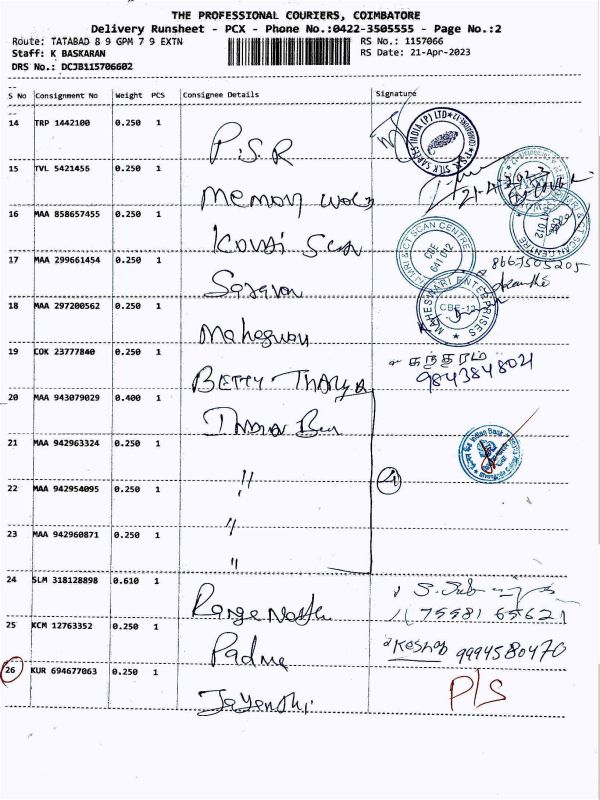 THE PROFESSIONAL COURIERS, COIMBATORE
Delivery Runsheet - PCX - Phone No.:0422-3505555 - Page No.:2
Route: TATABAD 8 9 GPM 7 9 EXTN RS No.: 1157066
Staff: K BASKARAN RS Date: 21-Apr-2023
DRS No.: DCJB115706602
S No Consignment No Weight PCS Consignee Details Signature
14 TRP 1442100 0.250 1 P.S.R
15 TVL 5421455 0.250 1 Memory
16 MAA 858657455 0.250 1 Kovai Scan
17 MAA 299661454 0.250 1
8667505205
18 MAA 297200562 0.250 1
MAHESWARI ENTERPRISES CBE-12
19 COK 23777840 0.250 1 BETTY சுந்தரம்
9843848021
20 MAA 943079029 0.400 1 Indian Ban
21 MAA 942963324 0.250 1 "
22 MAA 942954095 0.250 1 " 4
23 MAA 942960871 0.250 1 "
24 SLM 318128898 0.610 1
75581 65621
25 KCM 12763352 0.250 1 Padma Keshab 9994580470
26 KUR 694677063 0.250 1 P/S